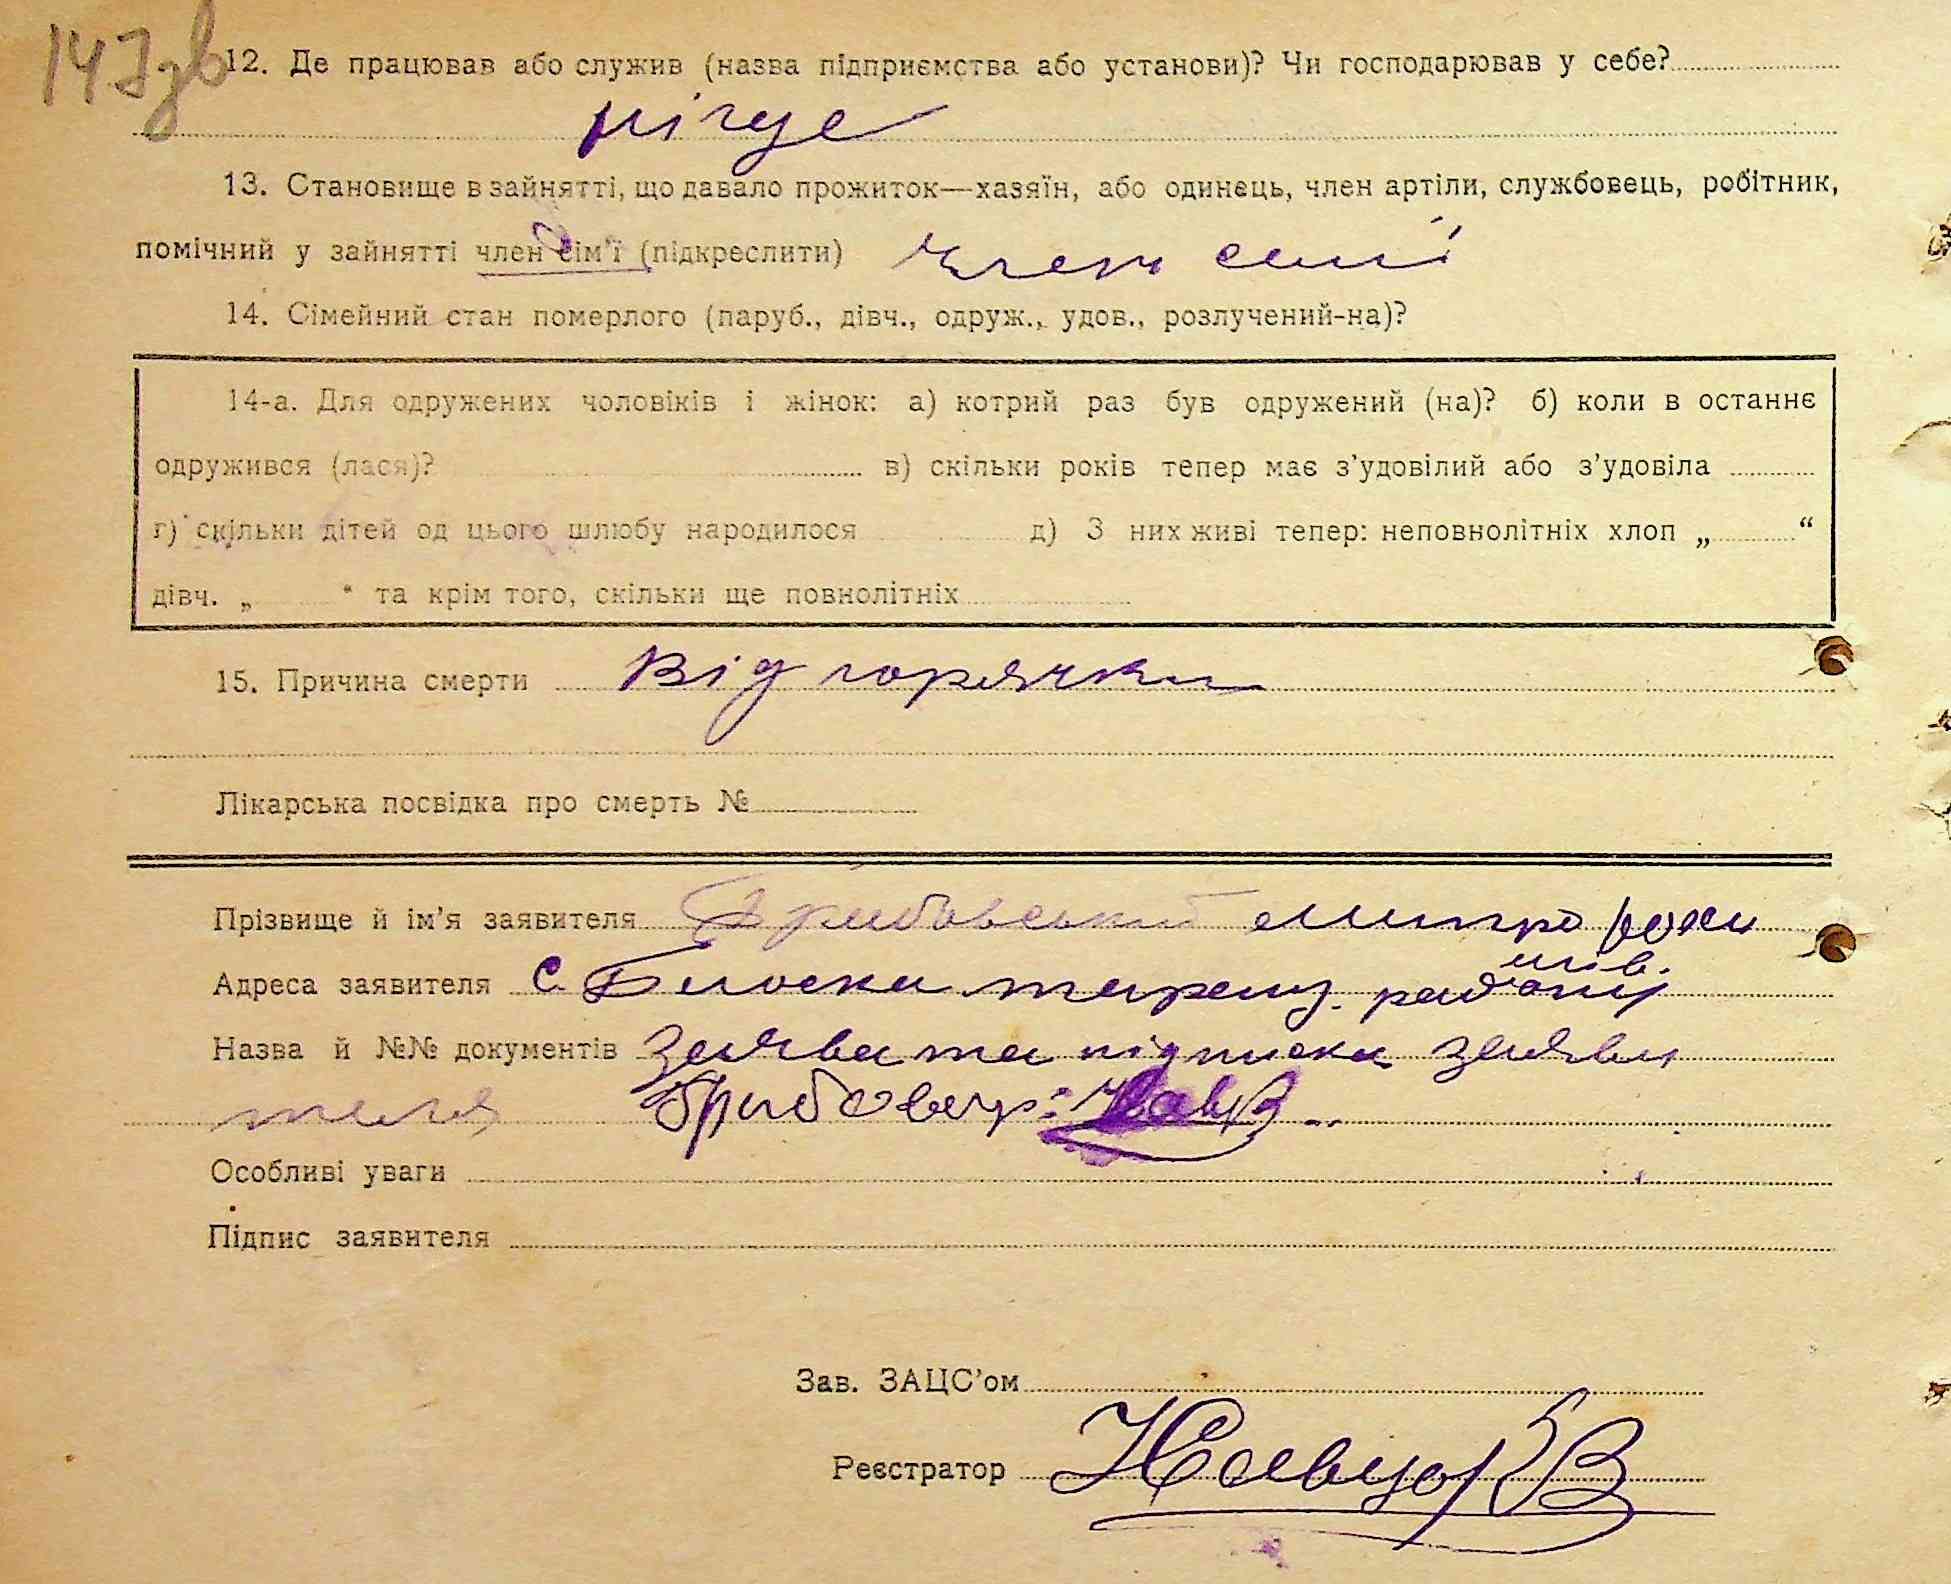 147 зв
12. Де працював або служив (назва підприємства або установи)? Чи господарював у себе?
нігде
13. Становище в зайнятті, що давало прожиток—хазяїн, або одинець, член артіли, службовець, робітник,
помічний у зайнятті член сім'ї (підкреслити) член семї
14. Сімейний стан померлого (паруб., дівч., одруж., удов., розлучений-на)?
14-а. Для одружених чоловіків і жінок: а) котрий раз був одружений (на)? б) коли в останнє
одружився (лася)? в) скільки років тепер має з'удовілий або з'удовіла
г) скільки дітей од цього шлюбу народилося д) З них живі тепер: неповнолітніх хлоп „ “
дівч. „ “ та крім того, скільки ще повнолітніх
15. Причина смерти Від горячки
Лікарська посвідка про смерть №
Прізвище й ім'я заявителя Грибовський
Адреса заявителя с. района
Назва й №№ документів Заява та підписка заяви
теля
Особливі уваги
Підпис заявителя
Зав. ЗАЦС'ом
Реєстратор